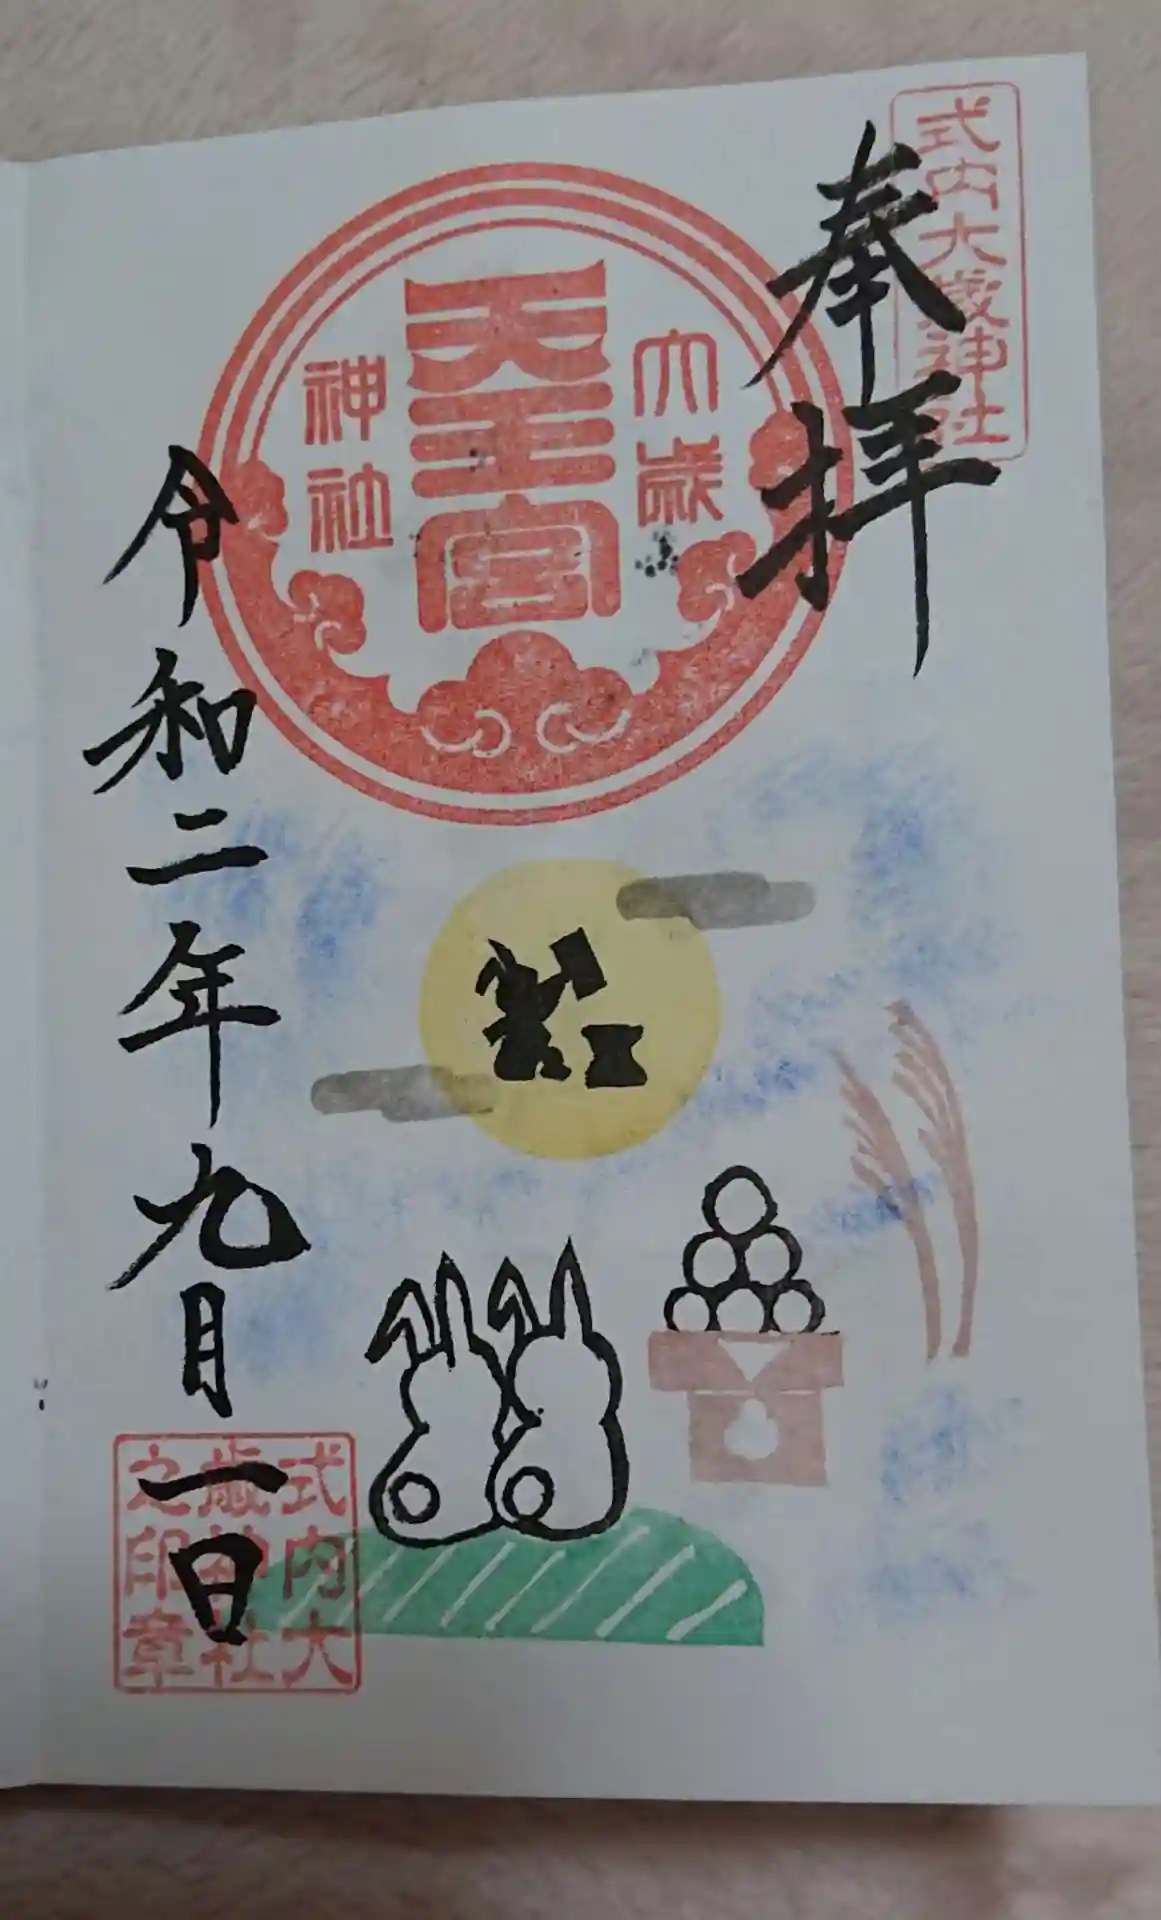 式内大歳神社
奉拝
大歳
天王宮
神社
令和二年九月一日
式内大
歳神社
之印章